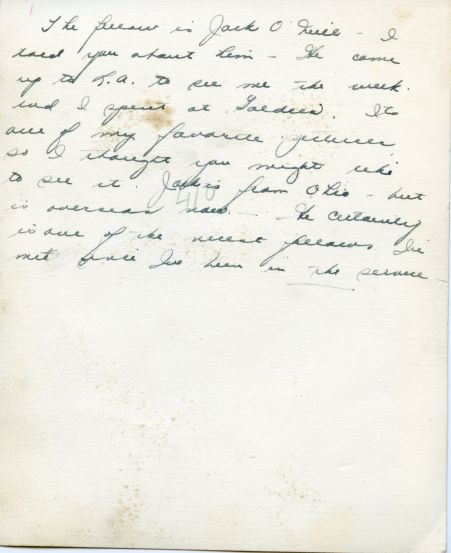 The fellow is Jack O'Neill - I
told you about him - He came
up to L.A. to see me the week
end I spent at Goldies. Its
one of my favorite pictures
so I thought you might like
to see it. Jack is from Ohio - but
is overseas now - He certainly
is one of the nicest fellows I've
met since I've been in the service -
410